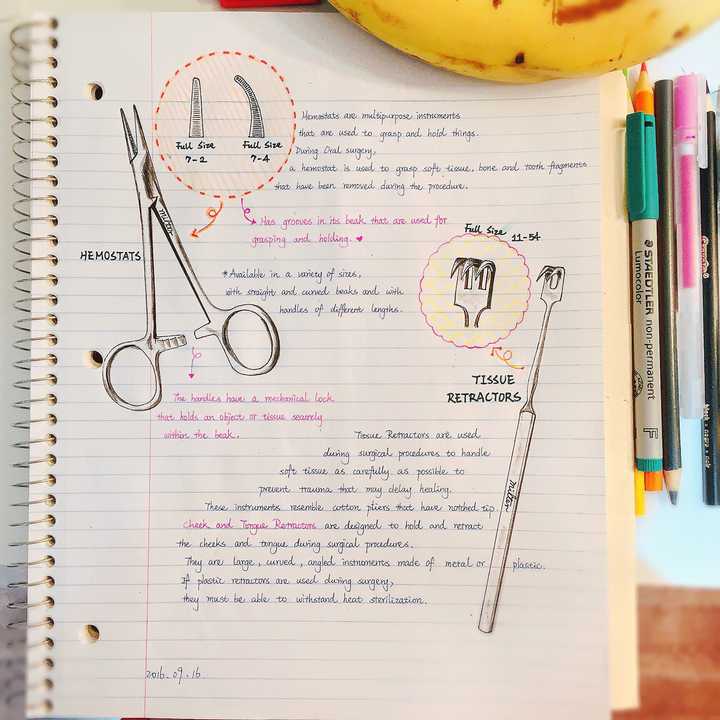 Full Size
7-2
Full Size
7-4
Hemostats are multipurpose instruments
that are used to grasp and hold things.
During Oral surgery,
a hemostat is used to grasp soft tissue, bone and tooth fragments
that have been removed during the procedure.
Has grooves in its beak that are used for
grasping and holding. ♥
miltex
HEMOSTATS
*Available in a variety of sizes,
with straight and curved beaks and with
handles of different lengths.
Full Size 11-54
The handles have a mechanical lock
that holds an object or tissue securely
within the beak.
TISSUE
RETRACTORS
Tissue Retractors are used
during surgical procedures to handle
soft tissue as carefully as possible to
prevent trauma that may delay healing.
These instruments resemble cotton pliers that have notched tip.
Cheek and Tongue Retractors are designed to hold and retract
the cheeks and tongue during surgical procedures.
They are large, curved, angled instruments made of metal or plastic.
If plastic retractors are used during surgery,
they must be able to withstand heat sterilization.
miltex
2016.09.16
STAEDTLER non-permanent
Lumocolor
F